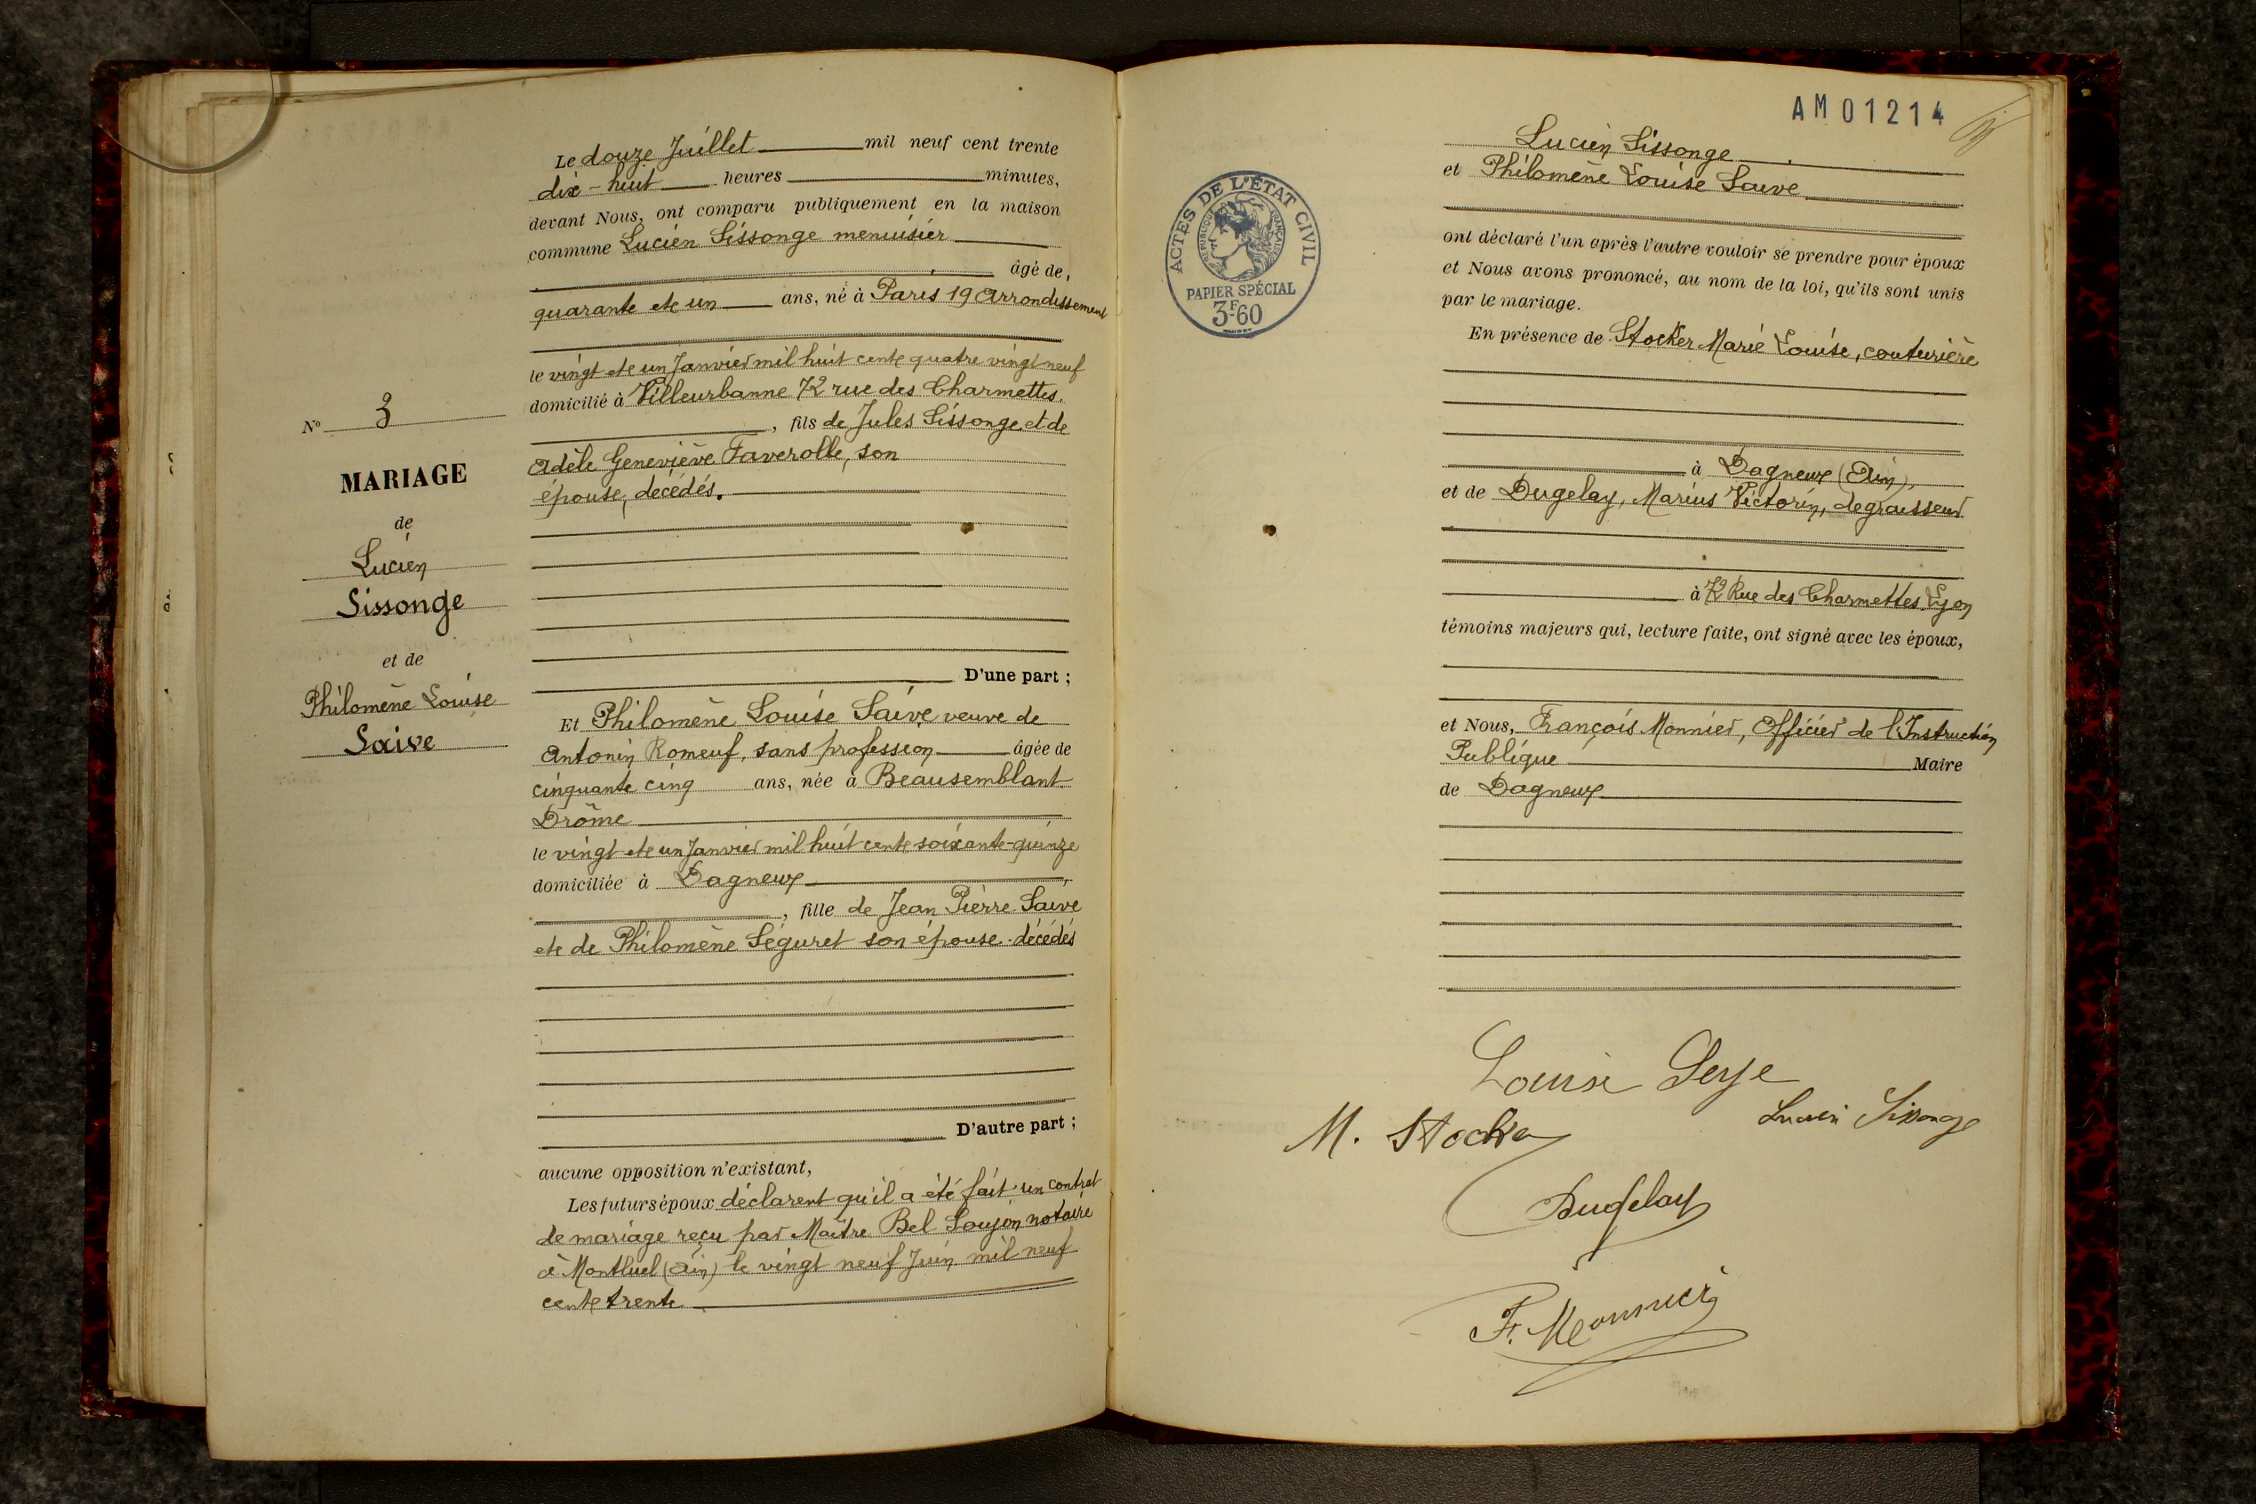 Le douze Juillet mil neuf cent trente
dix-huit heures minutes,
devant Nous, ont comparu publiquement en la maison
commune Lucien Sissonge menuisier
âgé de,
quarante et un ans, né à Paris 19 Arrondissement
le vingt et un Janvier mil huit cent quatre vingt neuf
domicilié à Villeurbanne 72 rue des Charmettes.
, fils de Jules Sissonge et de
Adèle Geneviève Faverolle, son
épouse, décédés.
D'une part ;
N° 3
MARIAGE
de
Lucien
Sissonge
et de
Philomène Louise
Saive
Et Philomène Louise Saive veuve de
Antonin Romeuf, sans profession âgée de
cinquante cinq ans, née à Beausemblant
Drôme
le vingt et un Janvier mil huit cent soixante-quinze
domiciliée à Dagneux,
, fille de Jean Pierre Saive
et de Philomène Séguret son épouse. décédés
D'autre part ;
aucune opposition n'existant,
Les futurs époux déclarent qu'il a été fait un contrat
de mariage reçu par Maître Bel Soujon notaire
à Montluel (Ain) le vingt neuf Juin mil neuf
cent trente
AM01214
ACTES DE L'ÉTAT CIVIL
RÉPUBLIQUE FRANÇAISE
PAPIER SPÉCIAL
3F60
Lucien Sissonge
et Philomène Louise Saive
ont déclaré l'un après l'autre vouloir se prendre pour époux
et Nous avons prononcé, au nom de la loi, qu'ils sont unis
par le mariage.
En présence de Stocker Marie Louise, couturière
à Dagneux (Ain),
et de Dugelay, Marius Victorin, degraisseur
à 72 Rue des Charmettes Lyon
témoins majeurs qui, lecture faite, ont signé avec les époux,
et Nous, François Monnier, Officier de l'Instruction
Publique Maire
de Dagneux
Louise
Lucien Sissonge
M. Stocker
Dugelay
F. Monnier